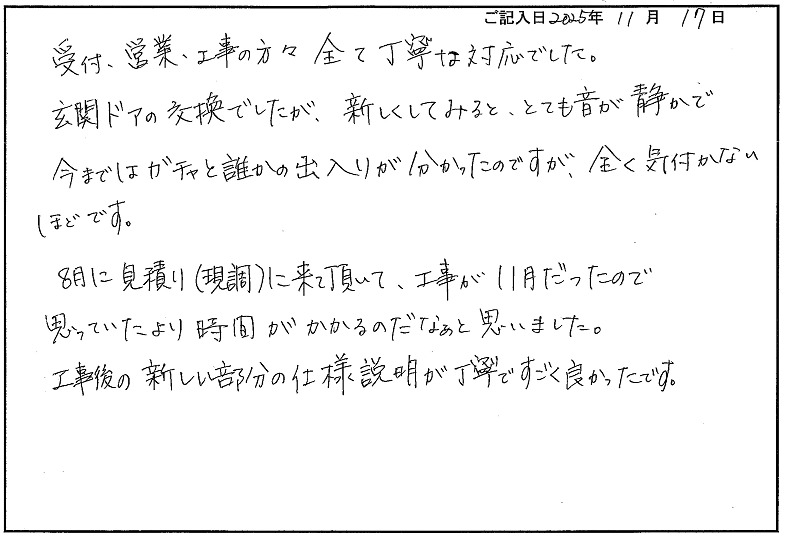 ご記入日2025年 11月 17日
受付、営業、工事の方々 全て丁寧な対応でした。
玄関ドアの交換でしたが、新しくしてみると、とても音が静かで
今まではガチャと誰かの出入りが分かったのですが、全く気付かない
ほどです。
8月に見積り(現調)に来て頂いて、工事が11月だったので
思っていたより時間がかかるのだなぁと思いました。
工事後の新しい部分の仕様説明が丁寧ですごく良かったです。